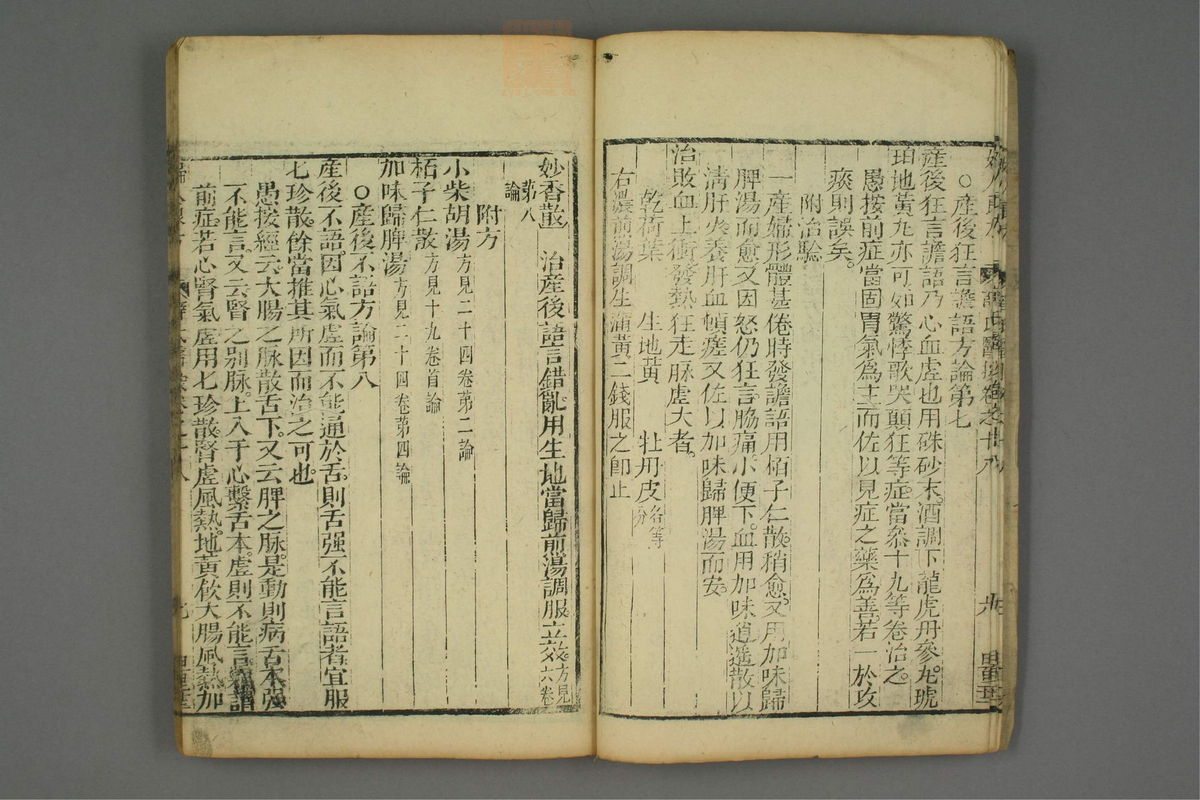 ○產後狂言譫語方論第七
產後狂言譫語乃心血虛也用硃砂末酒調下龍虎丹參丸琥
珀地黃丸亦可如驚悸歌哭顛狂等症當叅十九等卷治之
愚按前症當固胃氣爲主而佐以見症之藥爲善若一於攻
痰則誤矣
附治驗
一產婦形體甚倦時發譫語用栢子仁散稍愈又用加味歸
脾湯而愈又因怒仍狂言脇痛小便下血用加味逍遥散以
清肝火養肝血頓瘥又佐以加味歸脾湯而安
治敗血上衝發熱狂走脉虛大者
乾荷葉 生地黃 牡丹皮各等分
右濃煎湯調生蒲黃二錢服之即止
妙香散 治產後語言錯亂用生地當歸煎湯調服立效方見六卷
第八論
附方
小柴胡湯方見二十四卷第二論
栢子仁散方見十九卷首論
加味歸脾湯方見二十四卷第四論
○產後不語方論第八
產後不語因心氣虛而不能通於舌則舌强不能言語者宜服
七珍散餘當推其所因而治之可也
愚按經云大腸之脉散舌下又云脾之脉是動則病舌本强
不能言又云腎之别脉上入于心繫舌本虛則不能言
前症若心腎氣虛用七珍散腎虛風熱地黃飲大腸風熱加